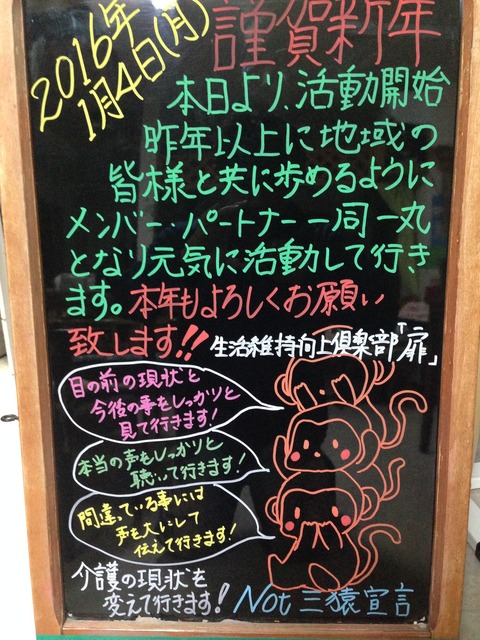 2016年
1月4日(月)
謹賀新年
本日より、活動開始
昨年以上に地域の
皆様と共に歩めるように
メンバー・パートナー一同一丸
となり元気に活動して行き
ます。本年もよろしくお願い
致します!!生活維持向上倶楽部「扉」
目の前の現状と
今後の事をしっかりと
見て行きます!
本当の声もしっかりと
聴いて行きます!
間違っている事には
声を大にして
伝えて行きます!
介護の現状を
変えて行きます!
Not 三猿宣言